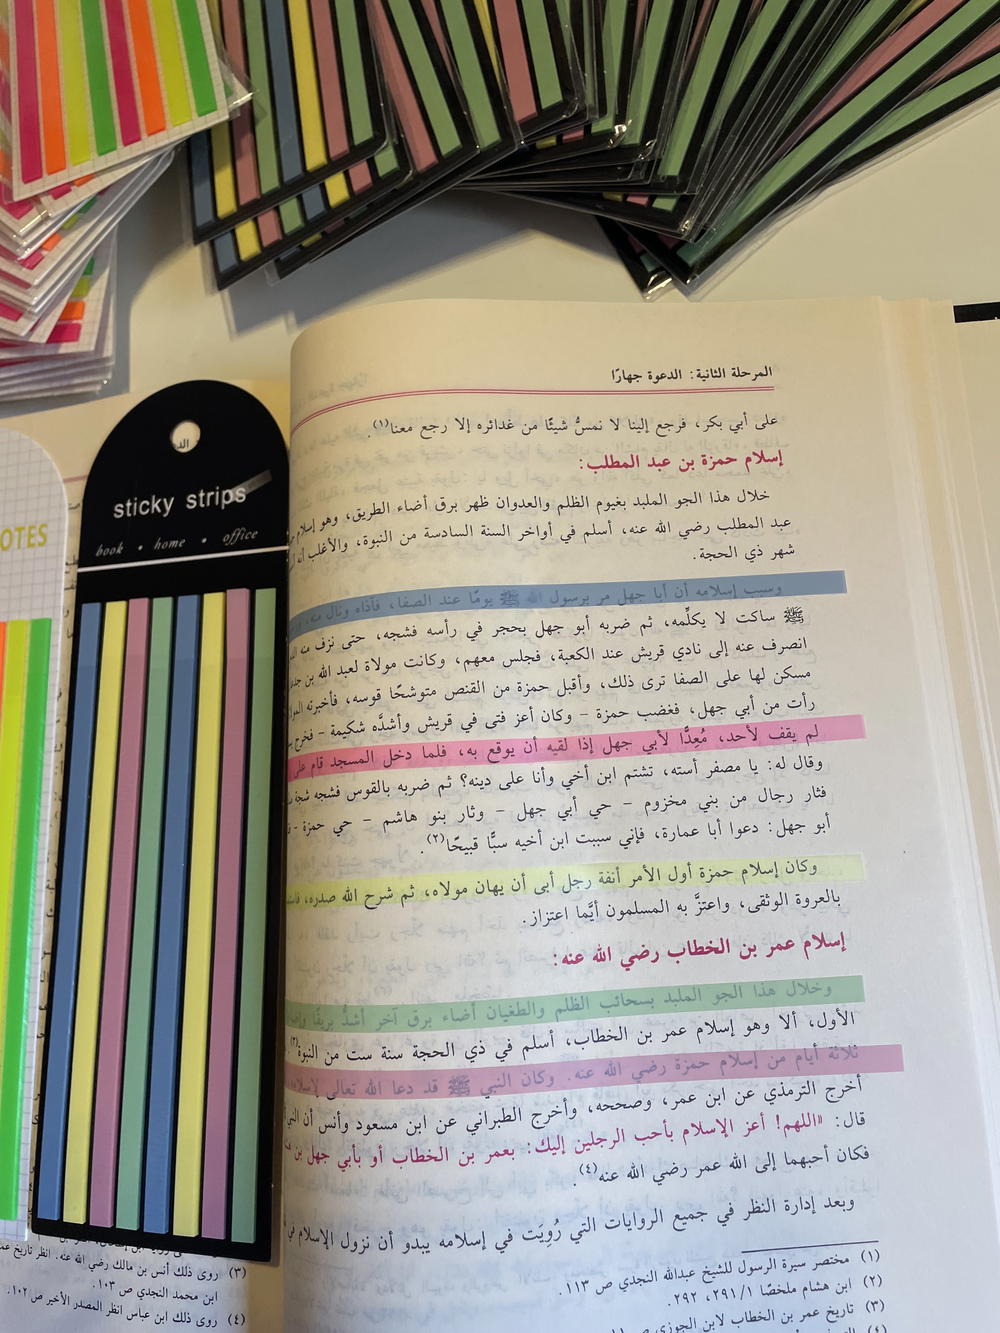 OTES
sticky strips
book • home • office
المرحلة الثانية: الدعوة جهارًا
على أبي بكر، فرجع إلينا لا نمسُّ شيئًا من غدائره إلا رجع معنا(١).
إسلام حمزة بن عبد المطلب:
خلال هذا الجو الملبد بغيوم الظلم والعدوان ظهر برق أضاء الطريق، وهو إسلام
عبد المطلب رضي الله عنه، أسلم في أواخر السنة السادسة من النبوة، والأغلب أنه
شهر ذي الحجة.
وسبب إسلامه أن أبا جهل مر برسول الله ﷺ يومًا عند الصفا، فآذاه ونال منه،
ﷺ ساكت لا يكلِّمه، ثم ضربه أبو جهل بحجر في رأسه فشجه، حتى نزف منه
انصرف عنه إلى نادي قريش عند الكعبة، فجلس معهم، وكانت مولاة لعبد الله بن
مسكن لها على الصفا ترى ذلك، وأقبل حمزة من القنص متوشحًا قوسه، فأخبرته
رأت من أبي جهل، فغضب حمزة - وكان أعز فتى في قريش وأشدَّه شكيمة - فخرج
لم يقف لأحد، مُعِدًّا لأبي جهل إذا لقيه أن يوقع به، فلما دخل المسجد قام على
وقال له: يا مصفر أسته، تشتم ابن أخي وأنا على دينه؟ ثم ضربه بالقوس فشجه شجة
فثار رجال من بني مخزوم - حي أبي جهل - وثار بنو هاشم - حي حمزة -
أبو جهل: دعوا أبا عمارة، فإني سببت ابن أخيه سبًّا قبيحًا(٢).
وكان إسلام حمزة أول الأمر أنفة رجل أبى أن يهان مولاه، ثم شرح الله صدره،
بالعروة الوثقى، واعتزَّ به المسلمون أيَّما اعتزاز.
إسلام عمر بن الخطاب رضي الله عنه:
وخلال هذا الجو الملبد بسحائب الظلم والطغيان أضاء برق آخر أشدُّ بريقًا
الأول، ألا وهو إسلام عمر بن الخطاب، أسلم في ذي الحجة سنة ست من النبوة(٣)
ثلاثة أيام من إسلام حمزة رضي الله عنه. وكان النبي ﷺ قد دعا الله تعالى لإسلامه
أخرج الترمذي عن ابن عمر، وصححه، وأخرج الطبراني عن ابن مسعود وأنس أن
قال: «اللهم! أعز الإسلام بأحب الرجلين إليك: بعمر بن الخطاب أو بأبي جهل بن
فكان أحبهما إلى الله عمر رضي الله عنه(٤).
وبعد إدارة النظر في جميع الروايات التي رُوِيَت في إسلامه يبدو أن نزول الإسلام
(١) مختصر سيرة الرسول للشيخ عبدالله النجدي ص ١١٣.
(٢) ابن هشام ملخصًا ٢٩١/١، ٢٩٢.
(٣) تاريخ عمر بن الخطاب لابن الجوزي ص
(٣) روى ذلك أنس بن مالك رضي الله عنه. انظر تاريخ
ابن محمد النجدي ص ١٠٣.
(٤) روى ذلك ابن عباس انظر المصدر الأخير ص ١٠٢.